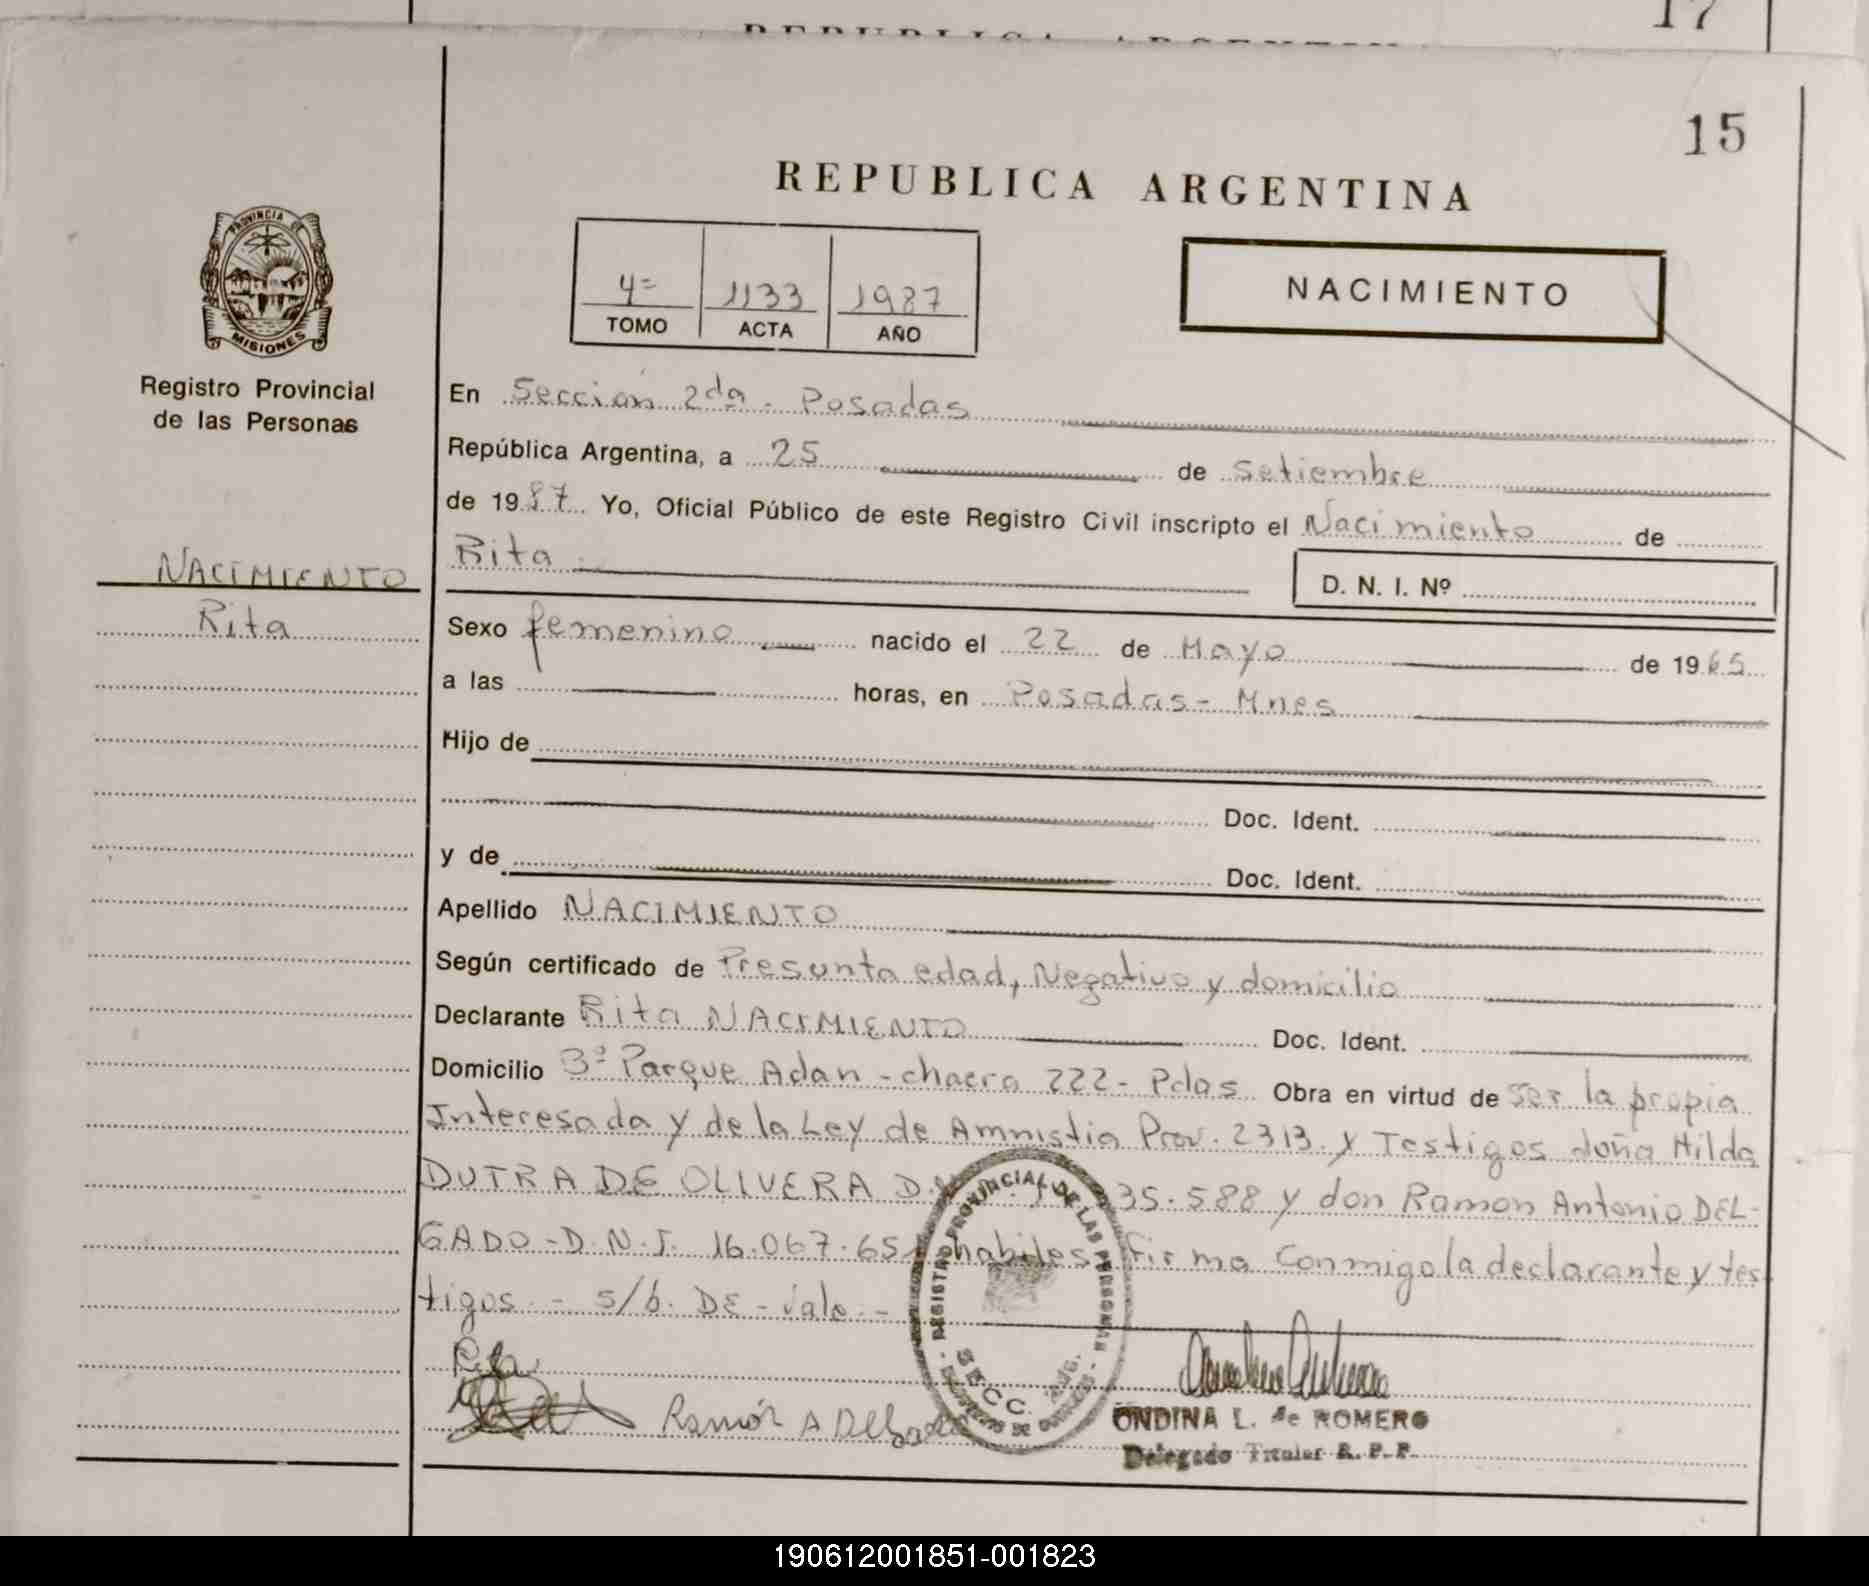 17
REPUBLICA ARGENTINA
15
REPUBLICA ARGENTINA
PROVINCIA DE
MISIONES
Registro Provincial
de las Personas
4= 1133 1987
TOMO ACTA AÑO
NACIMIENTO
En Sección 2da. Posadas
República Argentina, a 25 de Setiembre
de 1987. Yo, Oficial Público de este Registro Civil inscripto el Nacimiento de
Rita
D. N. I. Nº
NACIMIENTO
Rita
Sexo femenino nacido el 22 de Mayo de 1965
a las horas, en Posadas - Mnes
Hijo de
Doc. Ident.
y de Doc. Ident.
Apellido NACIMIENTO
Según certificado de Presunta edad, Negativo y domicilio
Declarante Rita NACIMIENTO Doc. Ident.
Domicilio Bº Parque Adan - chacra 222 - Pdas Obra en virtud de ser la propia
Interesada y de la Ley de Amnistia Prov. 2313 y Testigos doña Hilda
DUTRA DE OLIVERA 35.588 y don Ramon Antonio DEL-
GADO - D.N.I. 16.067.65 habiles firma conmigo la declarante y tes-
tigos. - s/b. DE - vale -
REGISTRO PROVINCIAL DE LAS PERSONAS
SECC.
Rita
Ramón A Delgado
ONDINA L. de ROMERO
Delegado Titular R. P. P.
190612001851-001823